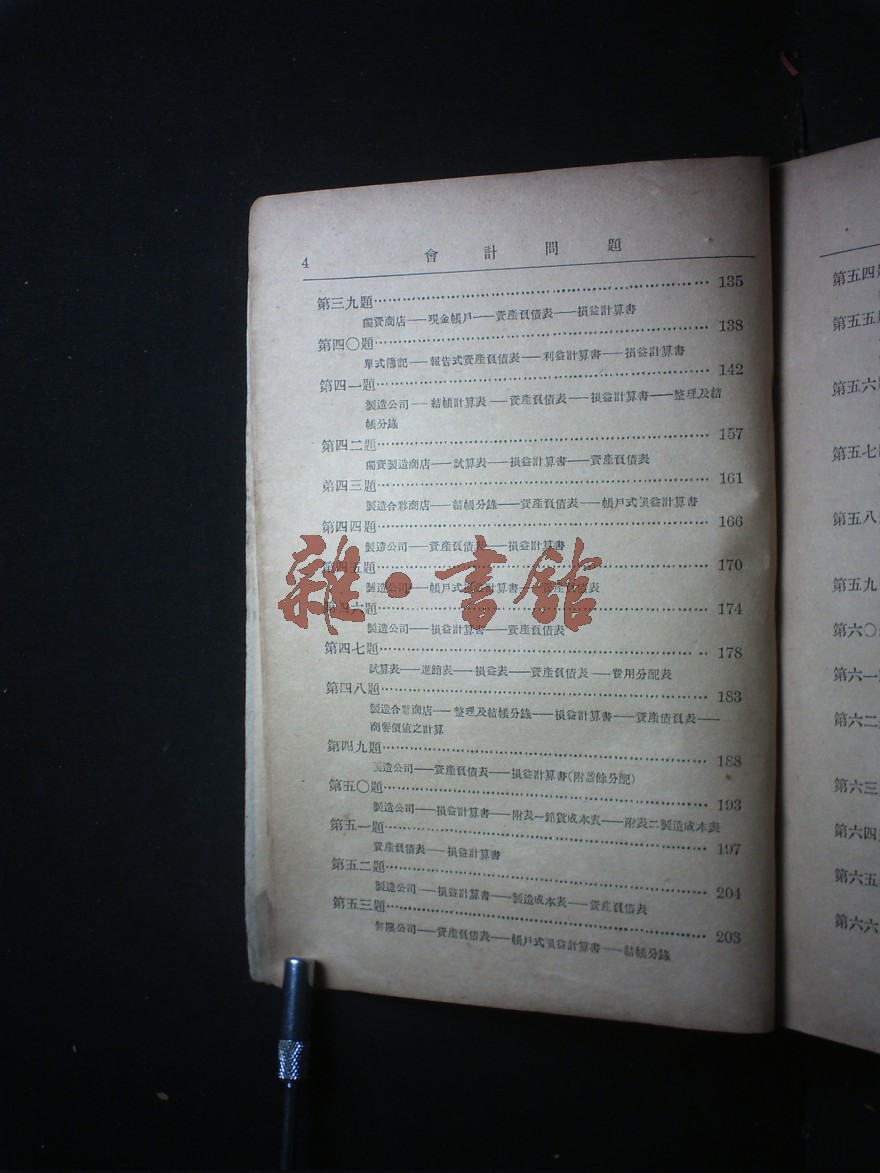 4 會計問題
第三九題 135
獨資商店——現金帳戶——資產負債表——損益計算書
第四〇題 138
單式簿記——報告式資產負債表——利益計算書——損益計算書
第四一題 142
製造公司——結帳計算表——資產負債表——損益計算書——整理及結
帳分錄
第四二題 157
獨資製造商店——試算表——損益計算書——資產負債表
弟四三題 161
製造合夥商店——結帳分錄——資產負債表——帳戶式損益計算書
第四四題 166
製造公司——資產負債表——損益計算書
第四五題 170
製造公司——帳戶式損益計算書——資產負債表
第四六題 174
製造公司——損益計算書——資產負債表
第四七題 178
試算表——進銷表——損益表——資產負債表——費用分配表
第四八題 183
製造合夥商店——整理及結帳分錄——損益計算書——資產債負表——
商譽價值之計算
第四九題 188
製造公司——資產負債表——損益計算書(附盈餘分配)
第五〇題 193
製造公司——損益計算書——附表一銷貨成本表——附表二製造成本表
第五一題 197
資產負債表——損益計算書
第五二題 204
製造公司——損益計算書——製造成本表——資產負債表
第五三題 208
無限公司——資產負債表——帳戶式損益計算書——結帳分錄
雜·書館
第五四
第五五
第五六
第五七
第五八
第五九
第六〇
第六一
第六二
第六三
第六四
第六五
第六六